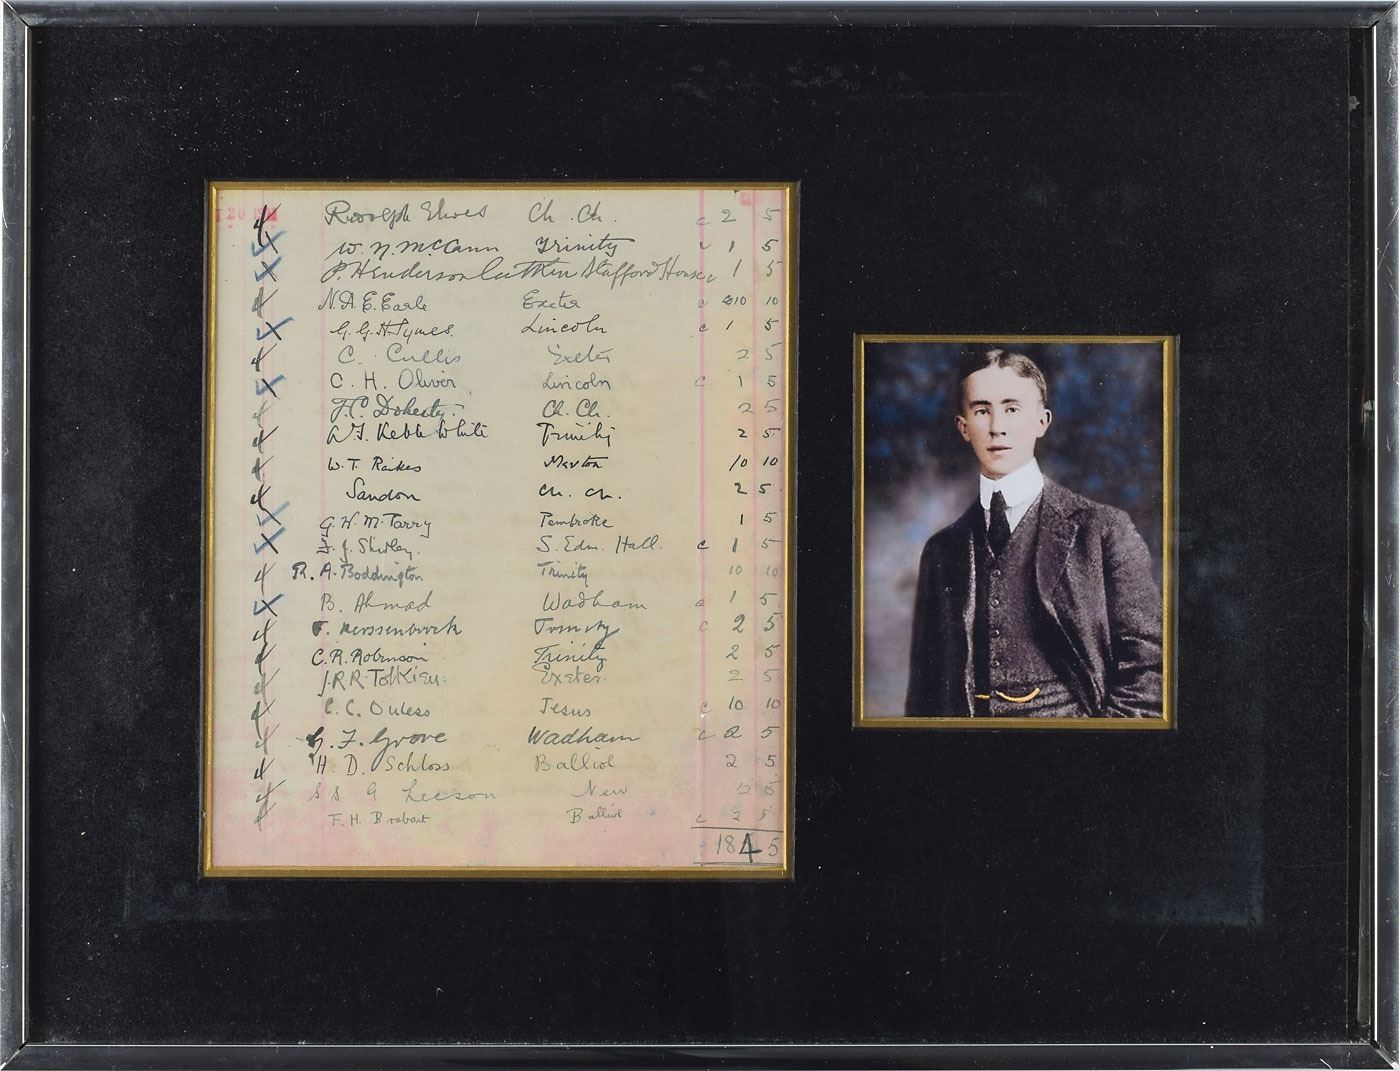 20
Rudolph Elwes Ch. Ch. c 2 5
W. N. McCann Trinity c 1 5
P. Henderson Aitken Stafford House c 1 5
N.A.E. Earle Exeter c 10 10
G. G. H. Symes. Lincoln c 1 5
C. Cullis Exeter 2 5
C. H. Oliver Lincoln c 1 5
J.C. Doherty. Ch. Ch. 2 5
Kebble White Trinity 2 5
W. T. Raikes Merton 10 10
Sandon Ch. Ch. 2 5
G. W. M. Tarry Pembroke 1 5
Shirley. S. Edm. Hall. c 1 5
R. A. Boddington Trinity 10 10
B. Ahmad Wadham c 1 5
Trinity c 2 5
C. R. Robinson Trinity 2 5
J.R.R. Tolkien. Exeter. 2 5
C. C. Duless Jesus c 10 10
G. F. Grove Wadham c 2 5
H D. Schloss Balliol 2 5
S S G Leeson New 2 5
F. H. Brabant Balliol c 2 5
184 5